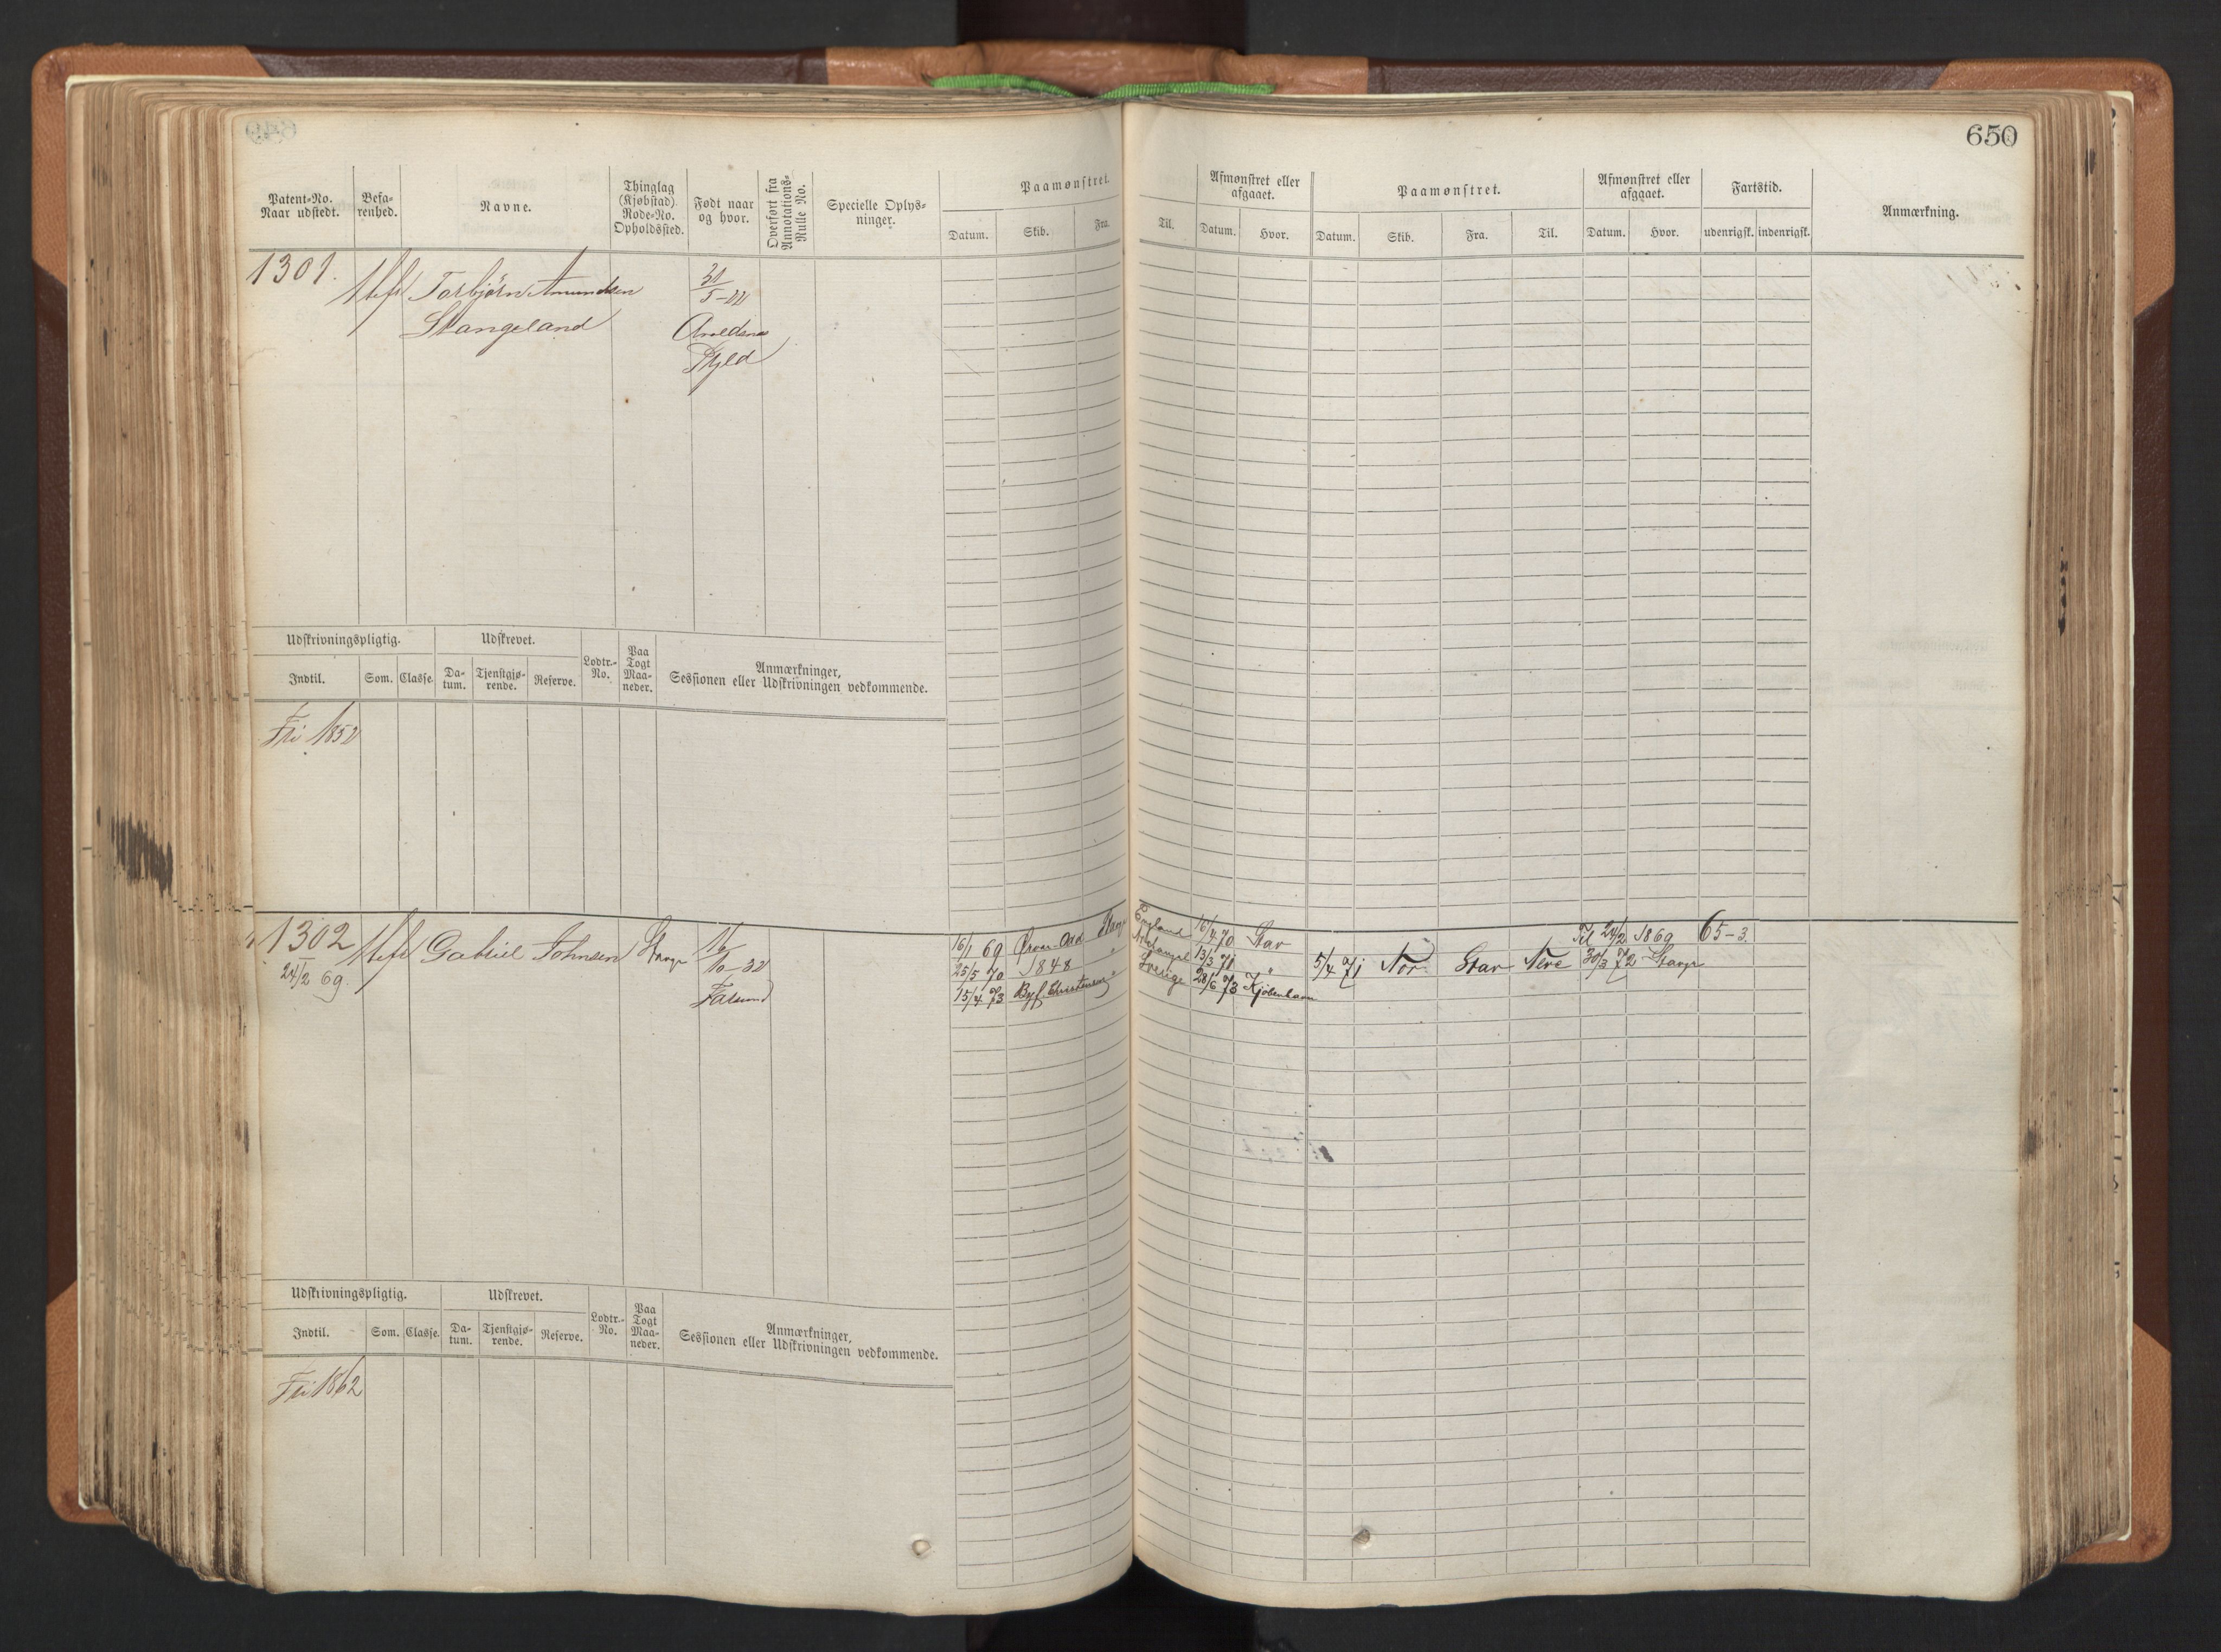 650
Patent-No.
Naar udstedt.
Befa-
renhed.
Navne.
Thinglag
(Kjøbstad)
Rode-No.
Opholdssted.
Født naar
og hvor.
Overført fra
Annotations-
Rulle No.
Specielle Oplys-
ninger.
Paamønstret.
Datum.
Skib.
Fra.
Til.
Afmønstret eller
afgaaet.
Datum.
Hvor.
Paamønstret.
Datum.
Skib.
Fra.
Til.
Afmønstret eller
afgaaet.
Datum.
Hvor.
Fartstid.
udenrigsk.
indenrigsk.
Anmærkning.
1301.
Torbjørn Amundsen
Stangeland
Udskrivningspligtig.
Udskrevet.
Lodtr.-
No.
Paa
Togt
Maa-
neder.
Anmærkninger,
Sessionen eller Udskrivningen vedkommende.
Indtil.
Som.
Classe.
Da-
tum.
Tjenstgjø-
rende.
Reserve.
Fri 1852
1302
24/2 69.
Gabriel Johnsen
16/10-32
16/1 69
England
16/4 70
Stav
Til 24/2 1869
65-3.
25/5 70
1848
"
13/3 71
"
5/4 71
Nor
Stav
30/3 72
15/4 73
"
Sverige
28/6 73
Kjøbenhavn
Udskrivningspligtig.
Udskrevet.
Lodtr.-
No.
Paa
Togt
Maa-
neder.
Anmærkninger,
Sessionen eller Udskrivningen vedkommende.
Indtil.
Som.
Classe.
Da-
tum.
Tjenstgjø-
rende.
Reserve.
Fri 1862